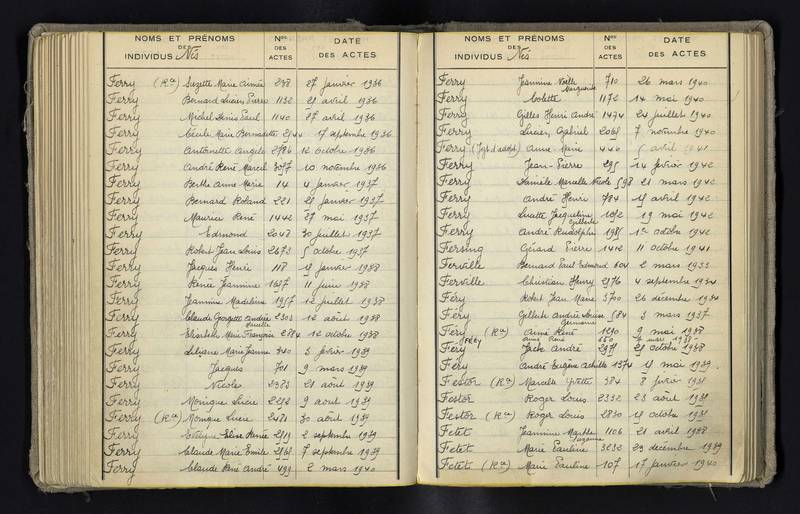 NOMS ET PRÉNOMS DES INDIVIDUS Nés Nos DES ACTES DATE DES ACTES
Ferry (Rce) Suzette Marie Aimée 298 27 janvier 1936
Ferry Bernard Lucien Pierre 1132 21 avril 1936
Ferry Michel Denis Paul 1140 27 avril 1936
Ferry Cécile Marie Bernadette 2544 17 septembre 1936
Ferry Antoinette Angèle 2786 12 octobre 1936
Ferry André René Marcel 3077 10 novembre 1936
Ferry Berthe Anne Marie 14 4 janvier 1937
Ferry Bernard Roland 221 21 janvier 1937
Ferry Maurice René 1442 27 mai 1937
Ferry Edmond 2048 30 juillet 1937
Ferry Robert Jean Louis 2673 5 octobre 1937
Ferry Jacques Henri 118 11 janvier 1938
Ferry Renée Jeannine 1637 11 juin 1938
Ferry Jeannine Madeleine 1957 12 juillet 1938
Ferry Claude Georgette Andrée 2303 12 août 1938
Ferry Elisabeth Marie Françoise 2884 12 octobre 1938
Ferry Liliane Marie Jeanne 340 3 février 1939
Ferry Jacques 701 9 mars 1939
Ferry Nicole 2383 21 août 1939
Ferry Monique Lucie 2282 9 août 1939
Ferry (Rce) Monique Lucie 2481 30 août 1939
Ferry Evelyne Renée 2519 2 septembre 1939
Ferry Claude Marie Emile 2568 7 septembre 1939
Ferry Claude René André 499 2 mars 1940
NOMS ET PRÉNOMS DES INDIVIDUS Nés Nos DES ACTES DATE DES ACTES
Ferry Jeannine Noëlle Marguerite 710 26 mars 1940
Ferry Colette 1172 14 mai 1940
Ferry Gilles Henri André 1474 24 juillet 1940
Ferry Lucien Gabriel 2068 7 novembre 1940
Ferry (Jugt d'adopt) Anne Marie 446 avril 1941
Ferry Jean-Pierre 295 14 février 1942
Ferry Danièle Marcelle Nicole 598 21 mars 1942
Ferry André Henri 784 17 avril 1942
Ferry Lucette Jacqueline 1052 19 mai 1942
Ferry André Rudolphe 1981 1er octobre 1942
Fersing Gérard Pierre 1412 11 octobre 1941
Ferville Bernard Paul Edmond 604 2 mars 1933
Ferville Christian Henry 2576 4 septembre 1934
Féry Robert Jean Marie 3700 26 décembre 1934
Féry Gilberte Andrée Louise Germaine 584 3 mars 1937
Féry (Rce) Aimé René 1290 9 mai 1938
FÉRY Aimé René 650 7 mars 1938
Féry Jack André 2971 21 octobre 1938
Féry André Eugène Achille 1374 11 mai 1939
Festor (Rce) Marcelle Yvette 384 8 février 1931
Festor Roger Louis 2332 23 août 1931
Festor (Rce) Roger Louis 2830 17 octobre 1931
Fetet Jeannine Marthe Suzanne 1106 21 avril 1938
Fetet Marie Pauline 3232 29 décembre 1939
Fetet (Rce) Marie Pauline 107 17 janvier 1940